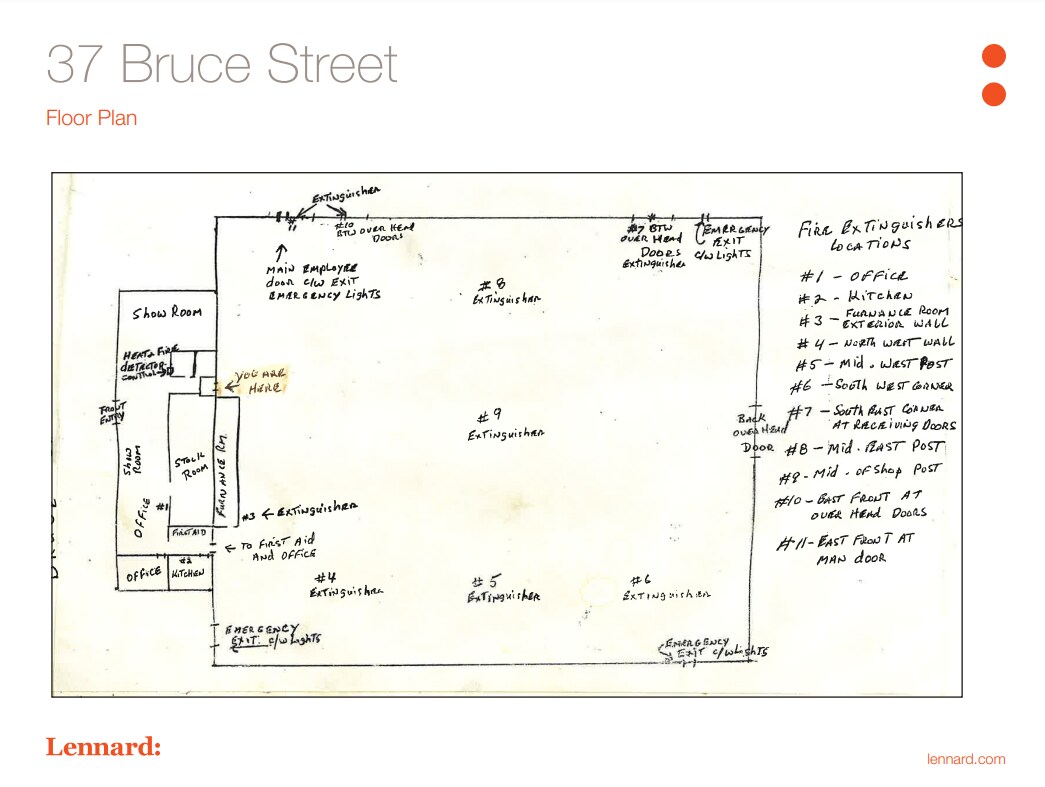 37 Bruce Street
Floor Plan
EXTINGUISHER
#11
#10
BTW OVER HEAD
DOORS
MAIN EMPLOYEE
DOOR C/W EXIT
EMERGENCY LIGHTS
#7 BTW
OVER HEAD
DOORS
EXTINGUISHER
EMERGENCY
EXIT
C/W LIGHTS
#8
EXTINGUISHER
SHOW ROOM
HEAT & FIRE
DETECTOR
CONTROL
YOU ARE
HERE
FRONT
ENTRY
SHOW
ROOM
STOCK
ROOM
FURNANCE RM.
#9
EXTINGUISHER
BACK
OVER HEAD
DOOR
OFFICE
#1
#3 ← EXTINGUISHER
FIRST AID
← TO FIRST AID
AND OFFICE
OFFICE
#2
KITCHEN
#4
EXTINGUISHER
#5
EXTINGUISHER
#6
EXTINGUISHER
EMERGENCY
EXIT. C/W LIGHTS
EMERGENCY
EXIT C/W LIGHTS
FIRE EXTINGUISHERS
LOCATIONS
#1 - OFFICE
#2 - KITCHEN
#3 - FURNANCE ROOM
EXTERIOR WALL
#4 - NORTH WEST WALL
#5 - MID. WEST POST
#6 - SOUTH WEST CORNER
#7 - SOUTH EAST CORNER
AT RECEIVING DOORS
#8 - MID. EAST POST
#9 - MID. OF SHOP POST
#10 - EAST FRONT AT
OVER HEAD DOORS
#11 - EAST FRONT AT
MAN DOOR
Lennard:
lennard.com